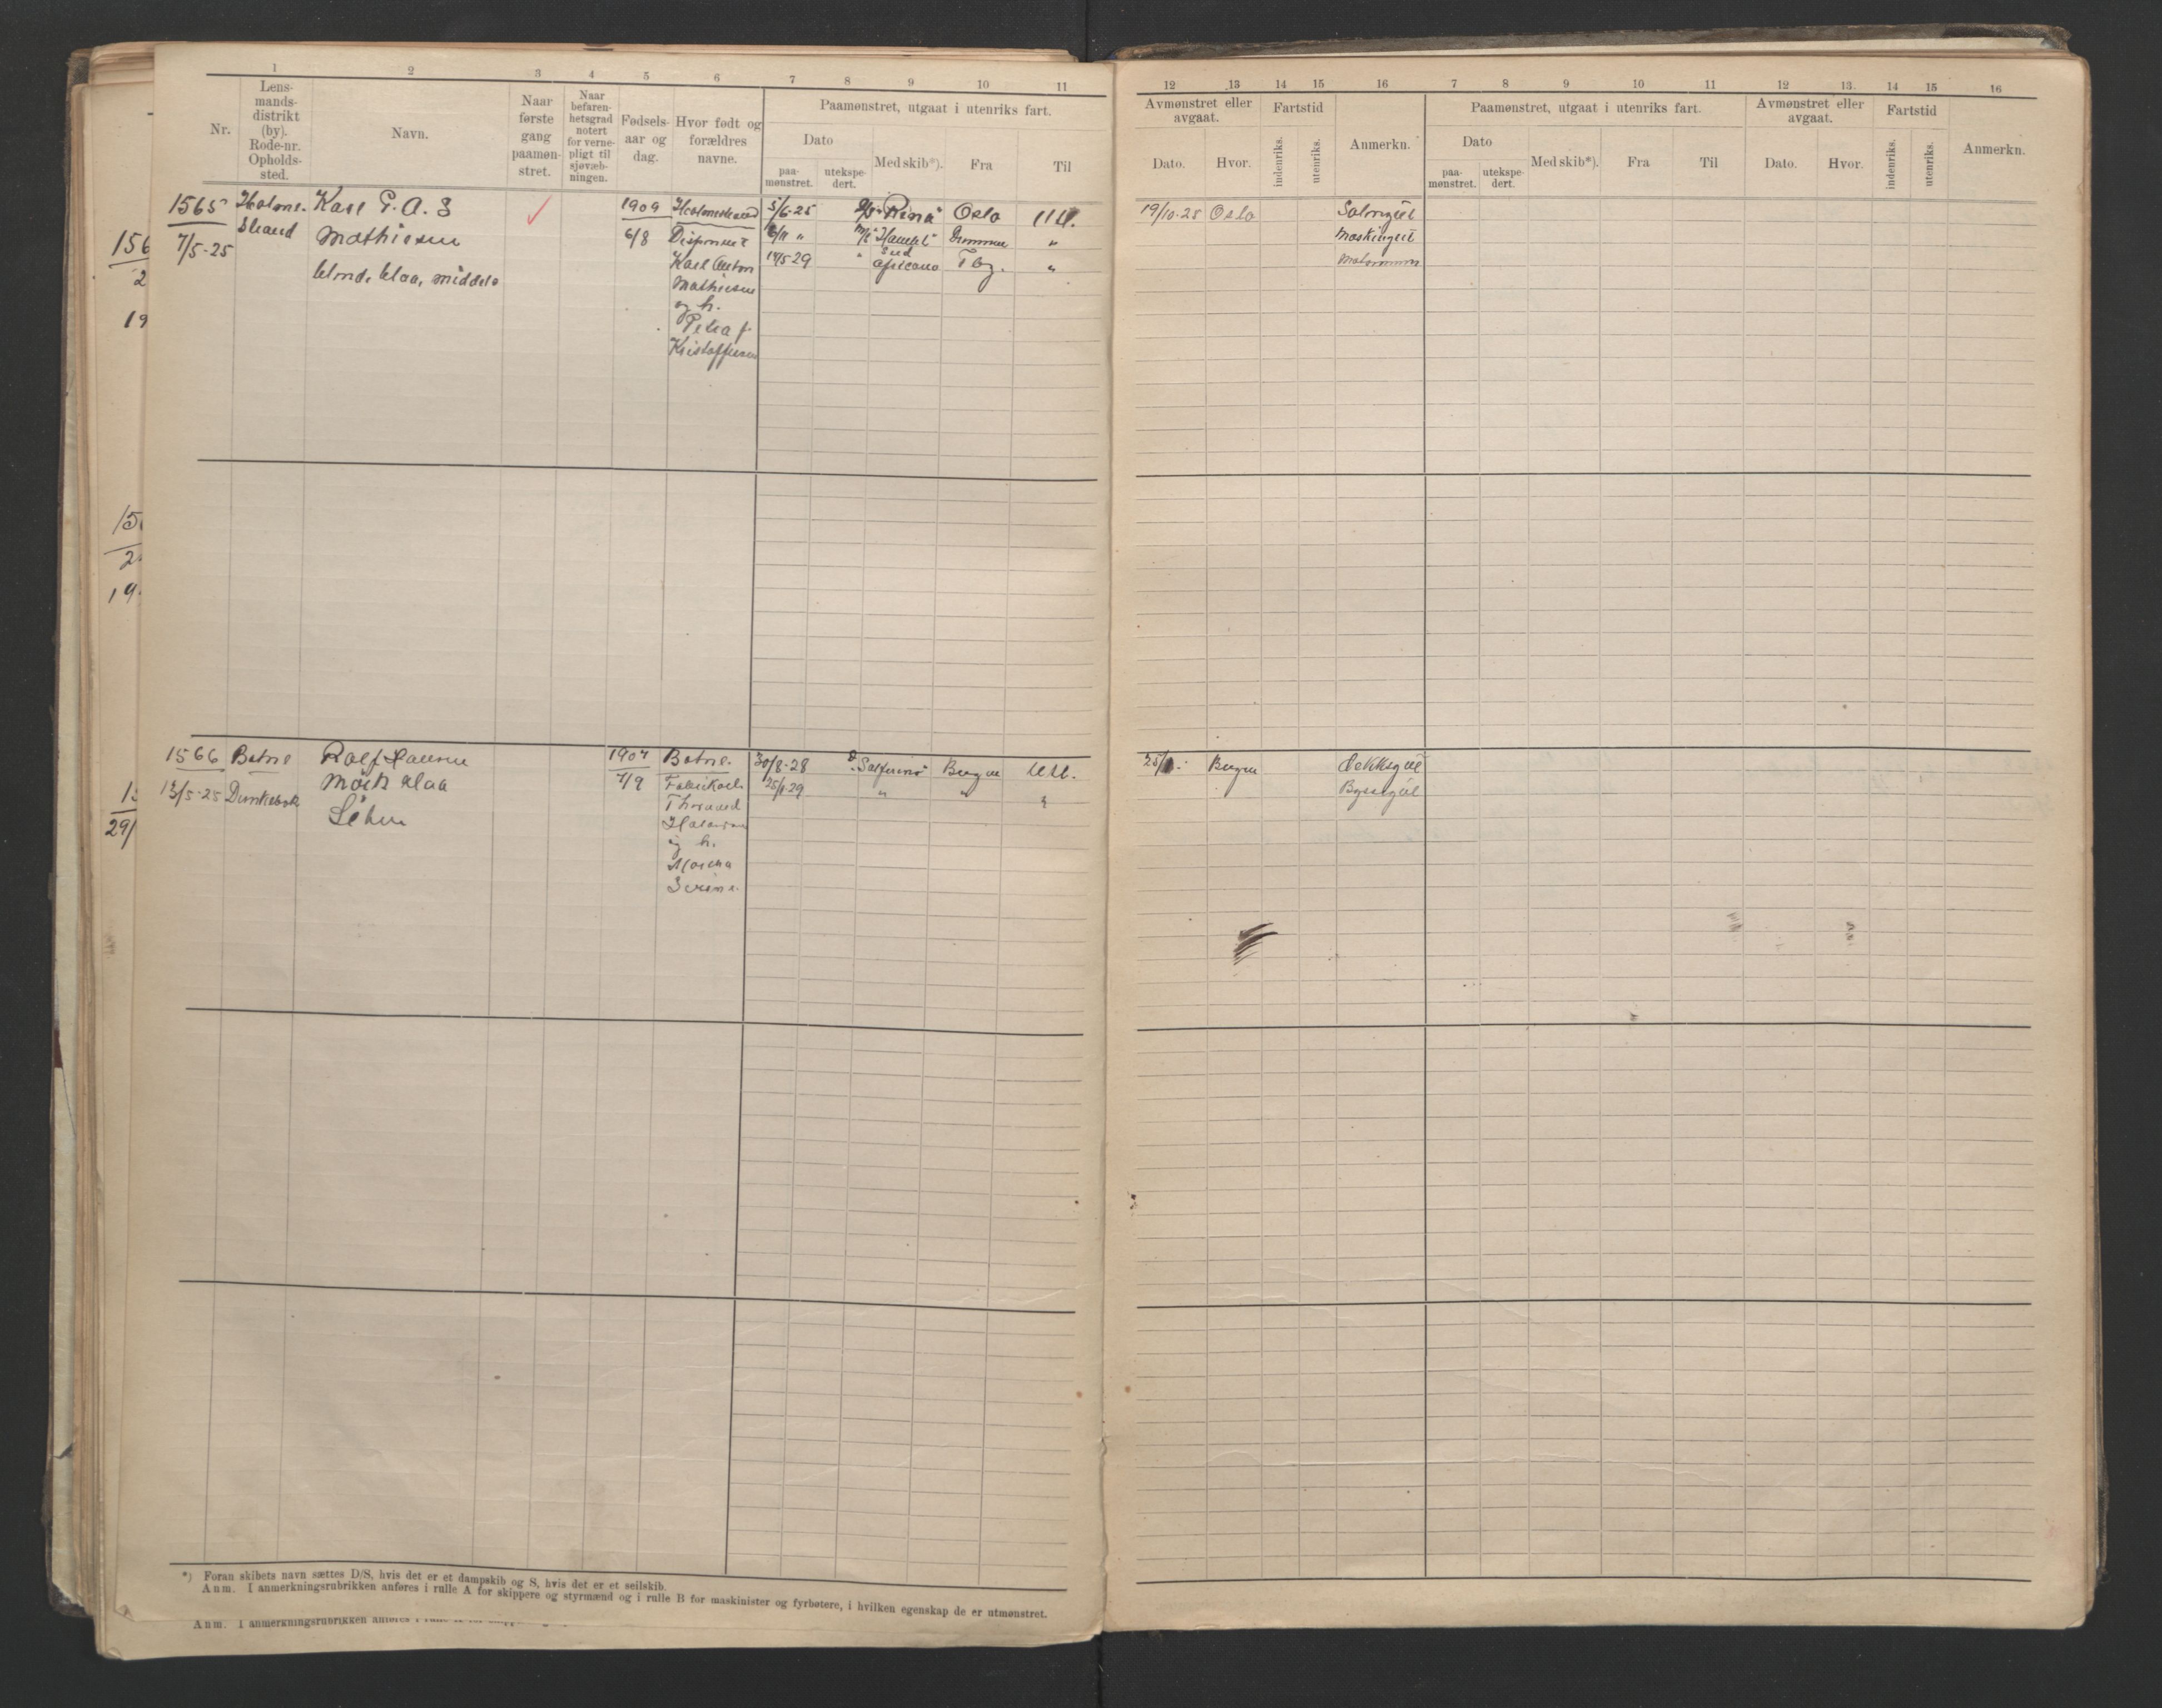 1 2 3 4 5 6 7 8 9 10 11
Nr.
Lens-
mands-
distrikt
(by).
Rode-nr.
Opholds-
sted.
Navn.
Naar
første
gang
paamøn-
stret.
Naar
befaren-
hetsgrad
notert
for verne-
pligt til
sjøvæb-
ningen.
Fødsels-
aar og
dag.
Hvor født og
forældres
navne.
Paamønstret, utgaat i utenriks fart.
Dato
paa-
mønstret.
utekspe-
dert.
Med skib*).
Fra
Til
1565
7/5-25
Holme.
strand
Karl P. A. S
Mathiesen
blond, blaa, middels
1909
6/8
Holmestrand
Disponent
Karl Anton
Mathiesen
og h.
Petra f.
Kristoffersen
5/6-25 "Rena" Oslo Utl.
6/11 " Drammen "
14/5 29 " Sud
Africano Tbg. "
1566
13/5-25
Botne
Rolf Hansen
Mørk blaa
1907
7/9
Botne.
Fabrikarb.
Thorvald
og h.
30/8-28 Bergen Utl.
25/1-29 " " "
*) Foran skibets navn sættes D/S, hvis det er et dampskib og S, hvis det er et seilskib.
Anm. I anmerkningsrubrikken anføres i rulle A for skippere og styrmænd og i rulle B for maskinister og fyrbøtere, i hvilken egenskap de er utmønstret.
Anm. I anmerkningsrubrikken anføres i
156
2
19
15
2
19
29/
12 13 14 15 16 7 8 9 10 11 12 13. 14 15 16
Avmønstret eller
avgaat.
Dato.
Hvor.
Fartstid
indenriks.
utenriks.
Anmerkn.
Paamønstret, utgaat i utenriks fart.
Dato
paa-
mønstret.
utekspe-
dert.
Med skib*).
Fra
Til
Avmønstret eller
avgaat.
Dato.
Hvor.
Fartstid
indenriks.
utenriks.
Anmerkn.
19/10-25 Oslo Salongut
Maskingut
Matsmann
Bergen Dekksgut
Byssegut